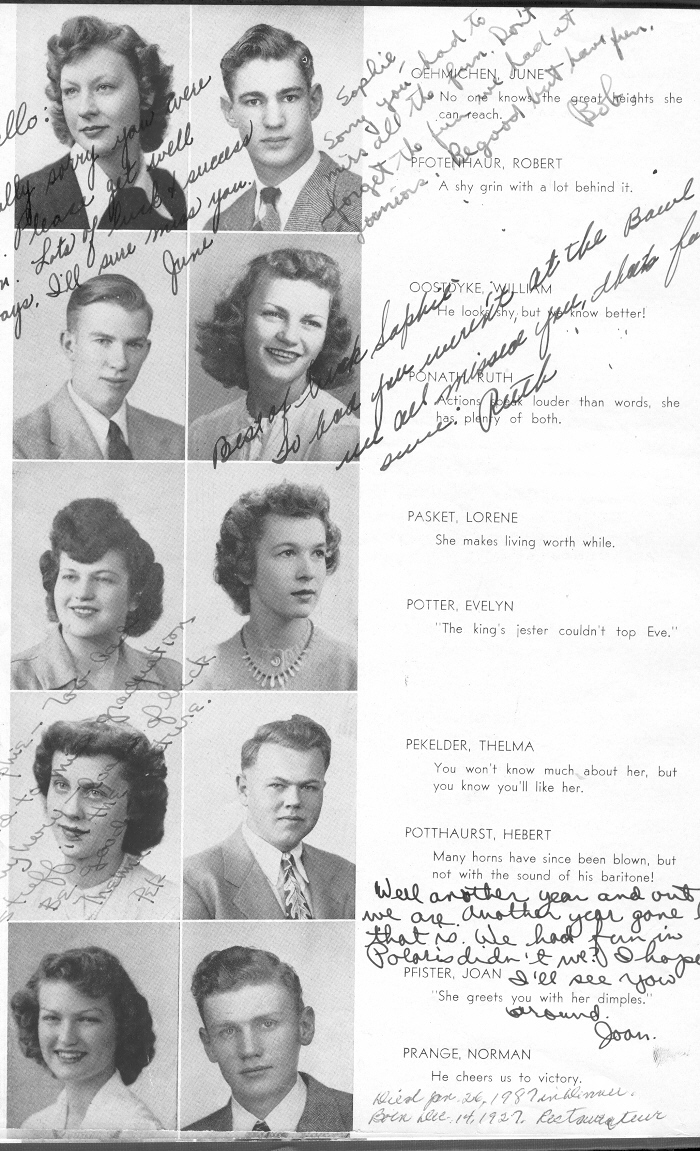 OEHMICHEN, JUNE
No one knows the great heights she
can reach.
PFOTENHAUR, ROBERT
A shy grin with a lot behind it.
OOSTDYKE, WILLIAM
He looks shy, but we know better!
PONATH, RUTH
Actions speak louder than words, she
has plenty of both.
PASKET, LORENE
She makes living worth while.
POTTER, EVELYN
"The king's jester couldn't top Eve."
PEKELDER, THELMA
You won't know much about her, but
you know you'll like her.
POTTHAURST, HEBERT
Many horns have since been blown, but
not with the sound of his baritone!
PFISTER, JOAN
"She greets you with her dimples."
PRANGE, NORMAN
He cheers us to victory.
sorry you were
Please get well
Lots of luck & success
I'll sure miss you.
June
Sophie,
Sorry you had to
miss all the fun. Don't
forget the fun we had at
Be good but have fun.
Bob
Best of luck Sophie
So bad you weren't at the Bawl
we all missed you, thats fo
sure. Ruth
Well another year and out
we are. Another year gone
that is. We had fun in
Polaris didn't we? I hope
I'll see you
around.
Joan.
Died Jan. 26, 1987 in Denver.
Born Dec. 14, 1927. Restaurateur